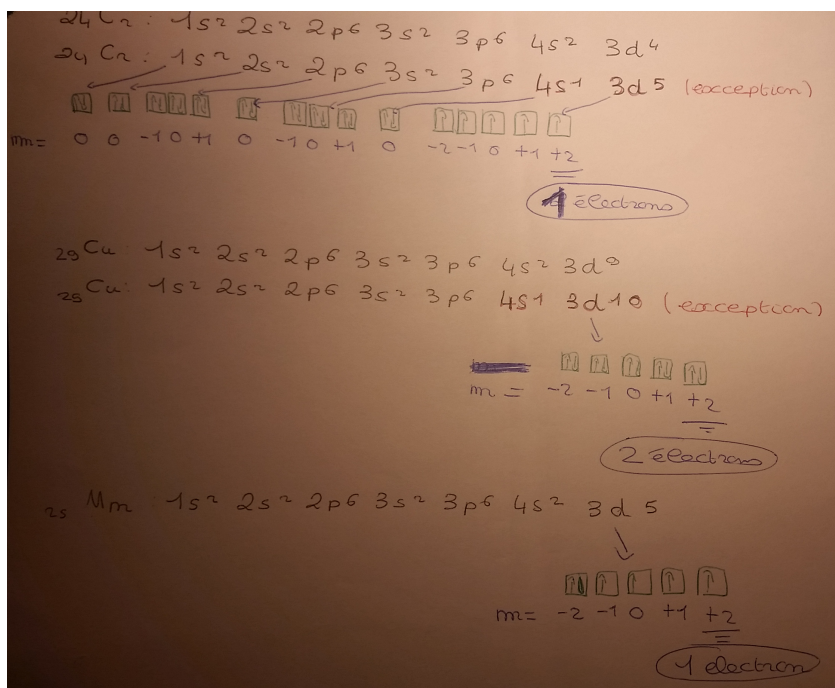 24Cr: 1s2 2s2 2p6 3s2 3p6 4s2 3d4
24Cr: 1s2 2s2 2p6 3s2 3p6 4s1 3d5 (exception)
m= 0 0 -1 0 +1 0 -1 0 +1 0 -2 -1 0 +1 +2
1 électrons
29Cu: 1s2 2s2 2p6 3s2 3p6 4s2 3d9
29Cu: 1s2 2s2 2p6 3s2 3p6 4s1 3d10 (exception)
m = -2 -1 0 +1 +2
2 électrons
25 Mn 1s2 2s2 2p6 3s2 3p6 4s2 3d5
m= -2 -1 0 +1 +2
1 électron